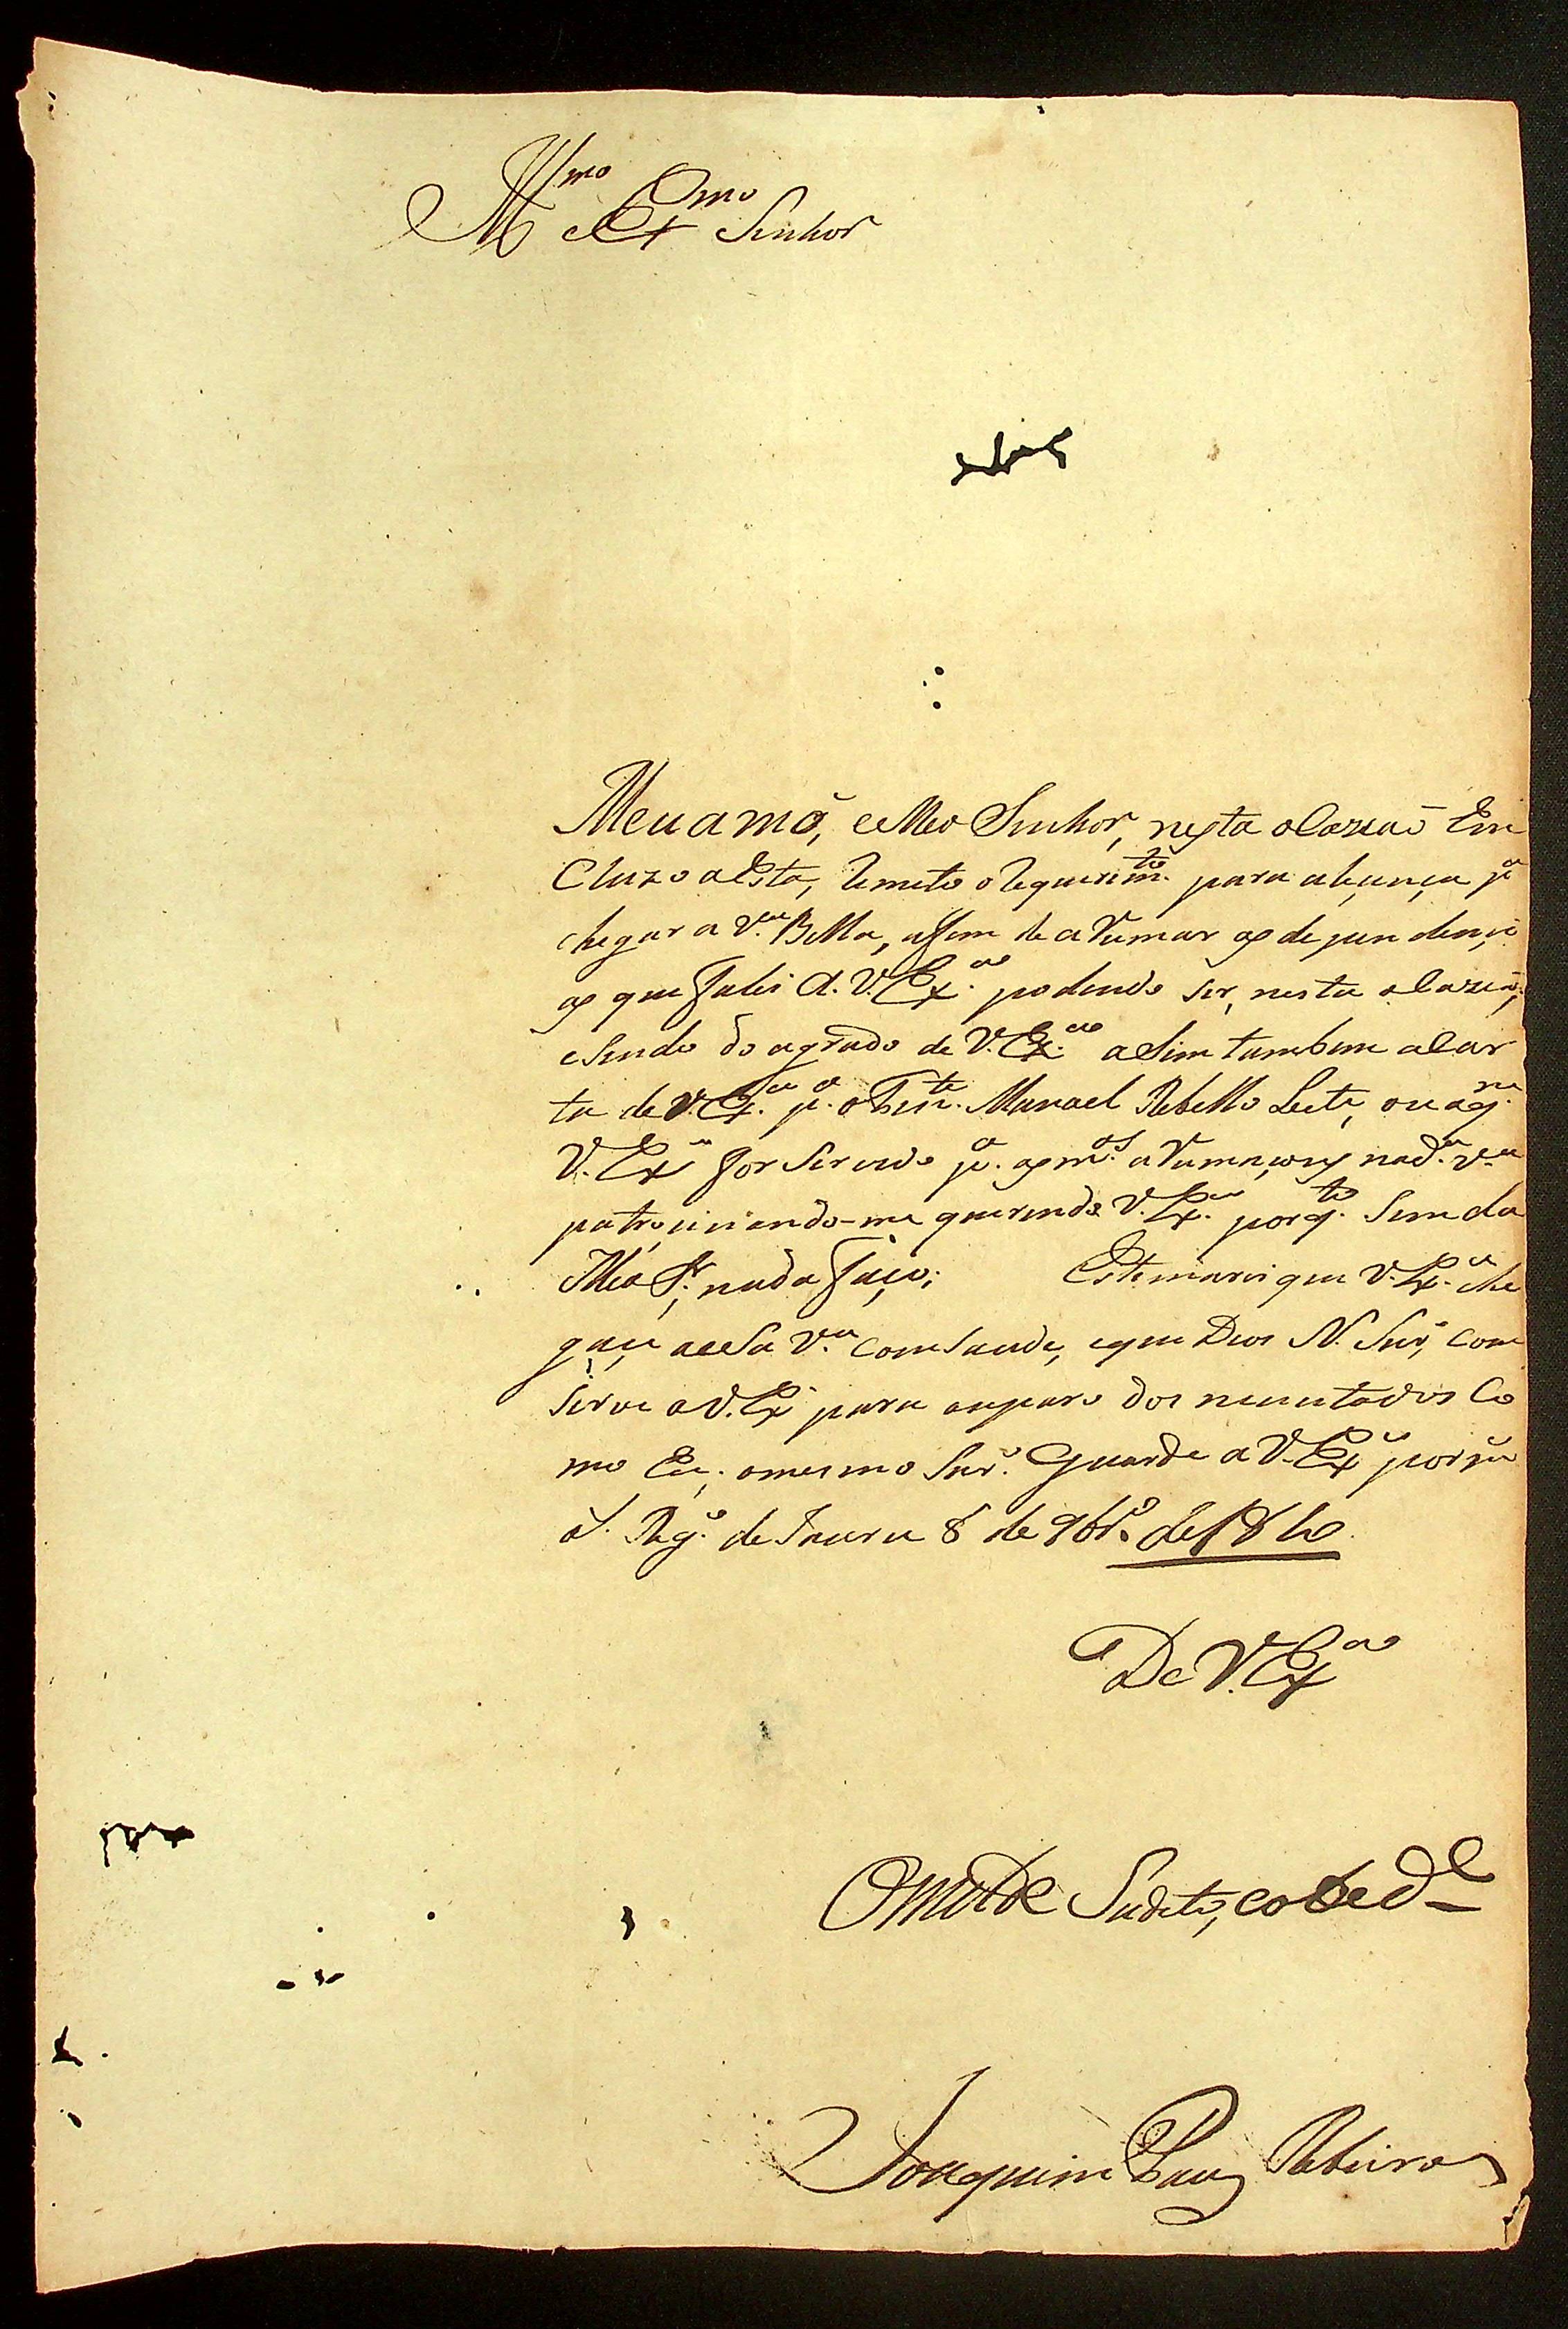 Illmo Exmo Senhor
Meu amo, e Meo Senhor, nesta ocaziaõ Em
Cluzo a Esta, Remeto o Requerimto. para a licença pa
chegar a Va. Bella, afim de aRumar as dependençias
as que falei A. V. Exa. podendo ser, nesta ocaziaõ,
e sendo do agrado de V. Exa. aSim tambem a Car
ta de V. Exa. pa. o Tente. Manoel Rebello Leite, ou a qm.
V. Exa. for Servido pa. as mas. aRumaçoes na da. Va.
patroçinando-me querendo V. Exa. porqto. Sem da
Meo Sr. nada faço; Estimarei que V. Exa. che
gaçe a eSa Va. com saude, e que Deos N. Snr. Com
serve a V. Exa para amparo dos necesitados Co
mo Eu; o mesmo Snr. Guarde a V. Exa por m
as. Rego. de Jauru 8 de 9bro. de
De V. Exa
Omilde Sudito, e obede
Joaquim Ribeiro